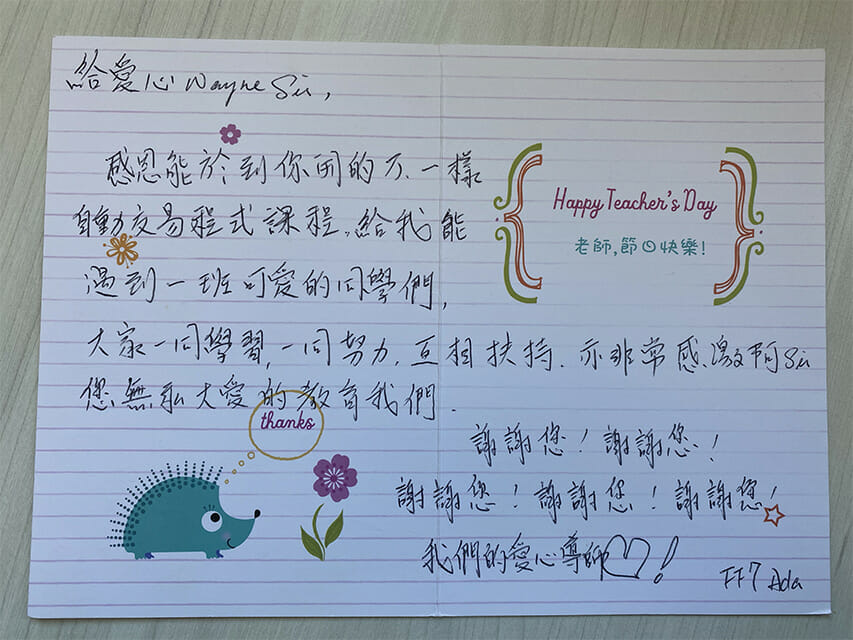 給愛心 Wayne Sir,
感恩能於到你開的不一樣
自動交易程式課程,給我能
遇到一班可愛的同學們,
大家一同學習,一同努力,互相扶持.亦非常感激阿Sir
您無私大愛的教育我們.
謝謝您!謝謝您!
謝謝您!謝謝您!謝謝您!
我們的愛心導師♡!
FF7 Ada
Happy Teacher's Day
老師,節日快樂!
thanks